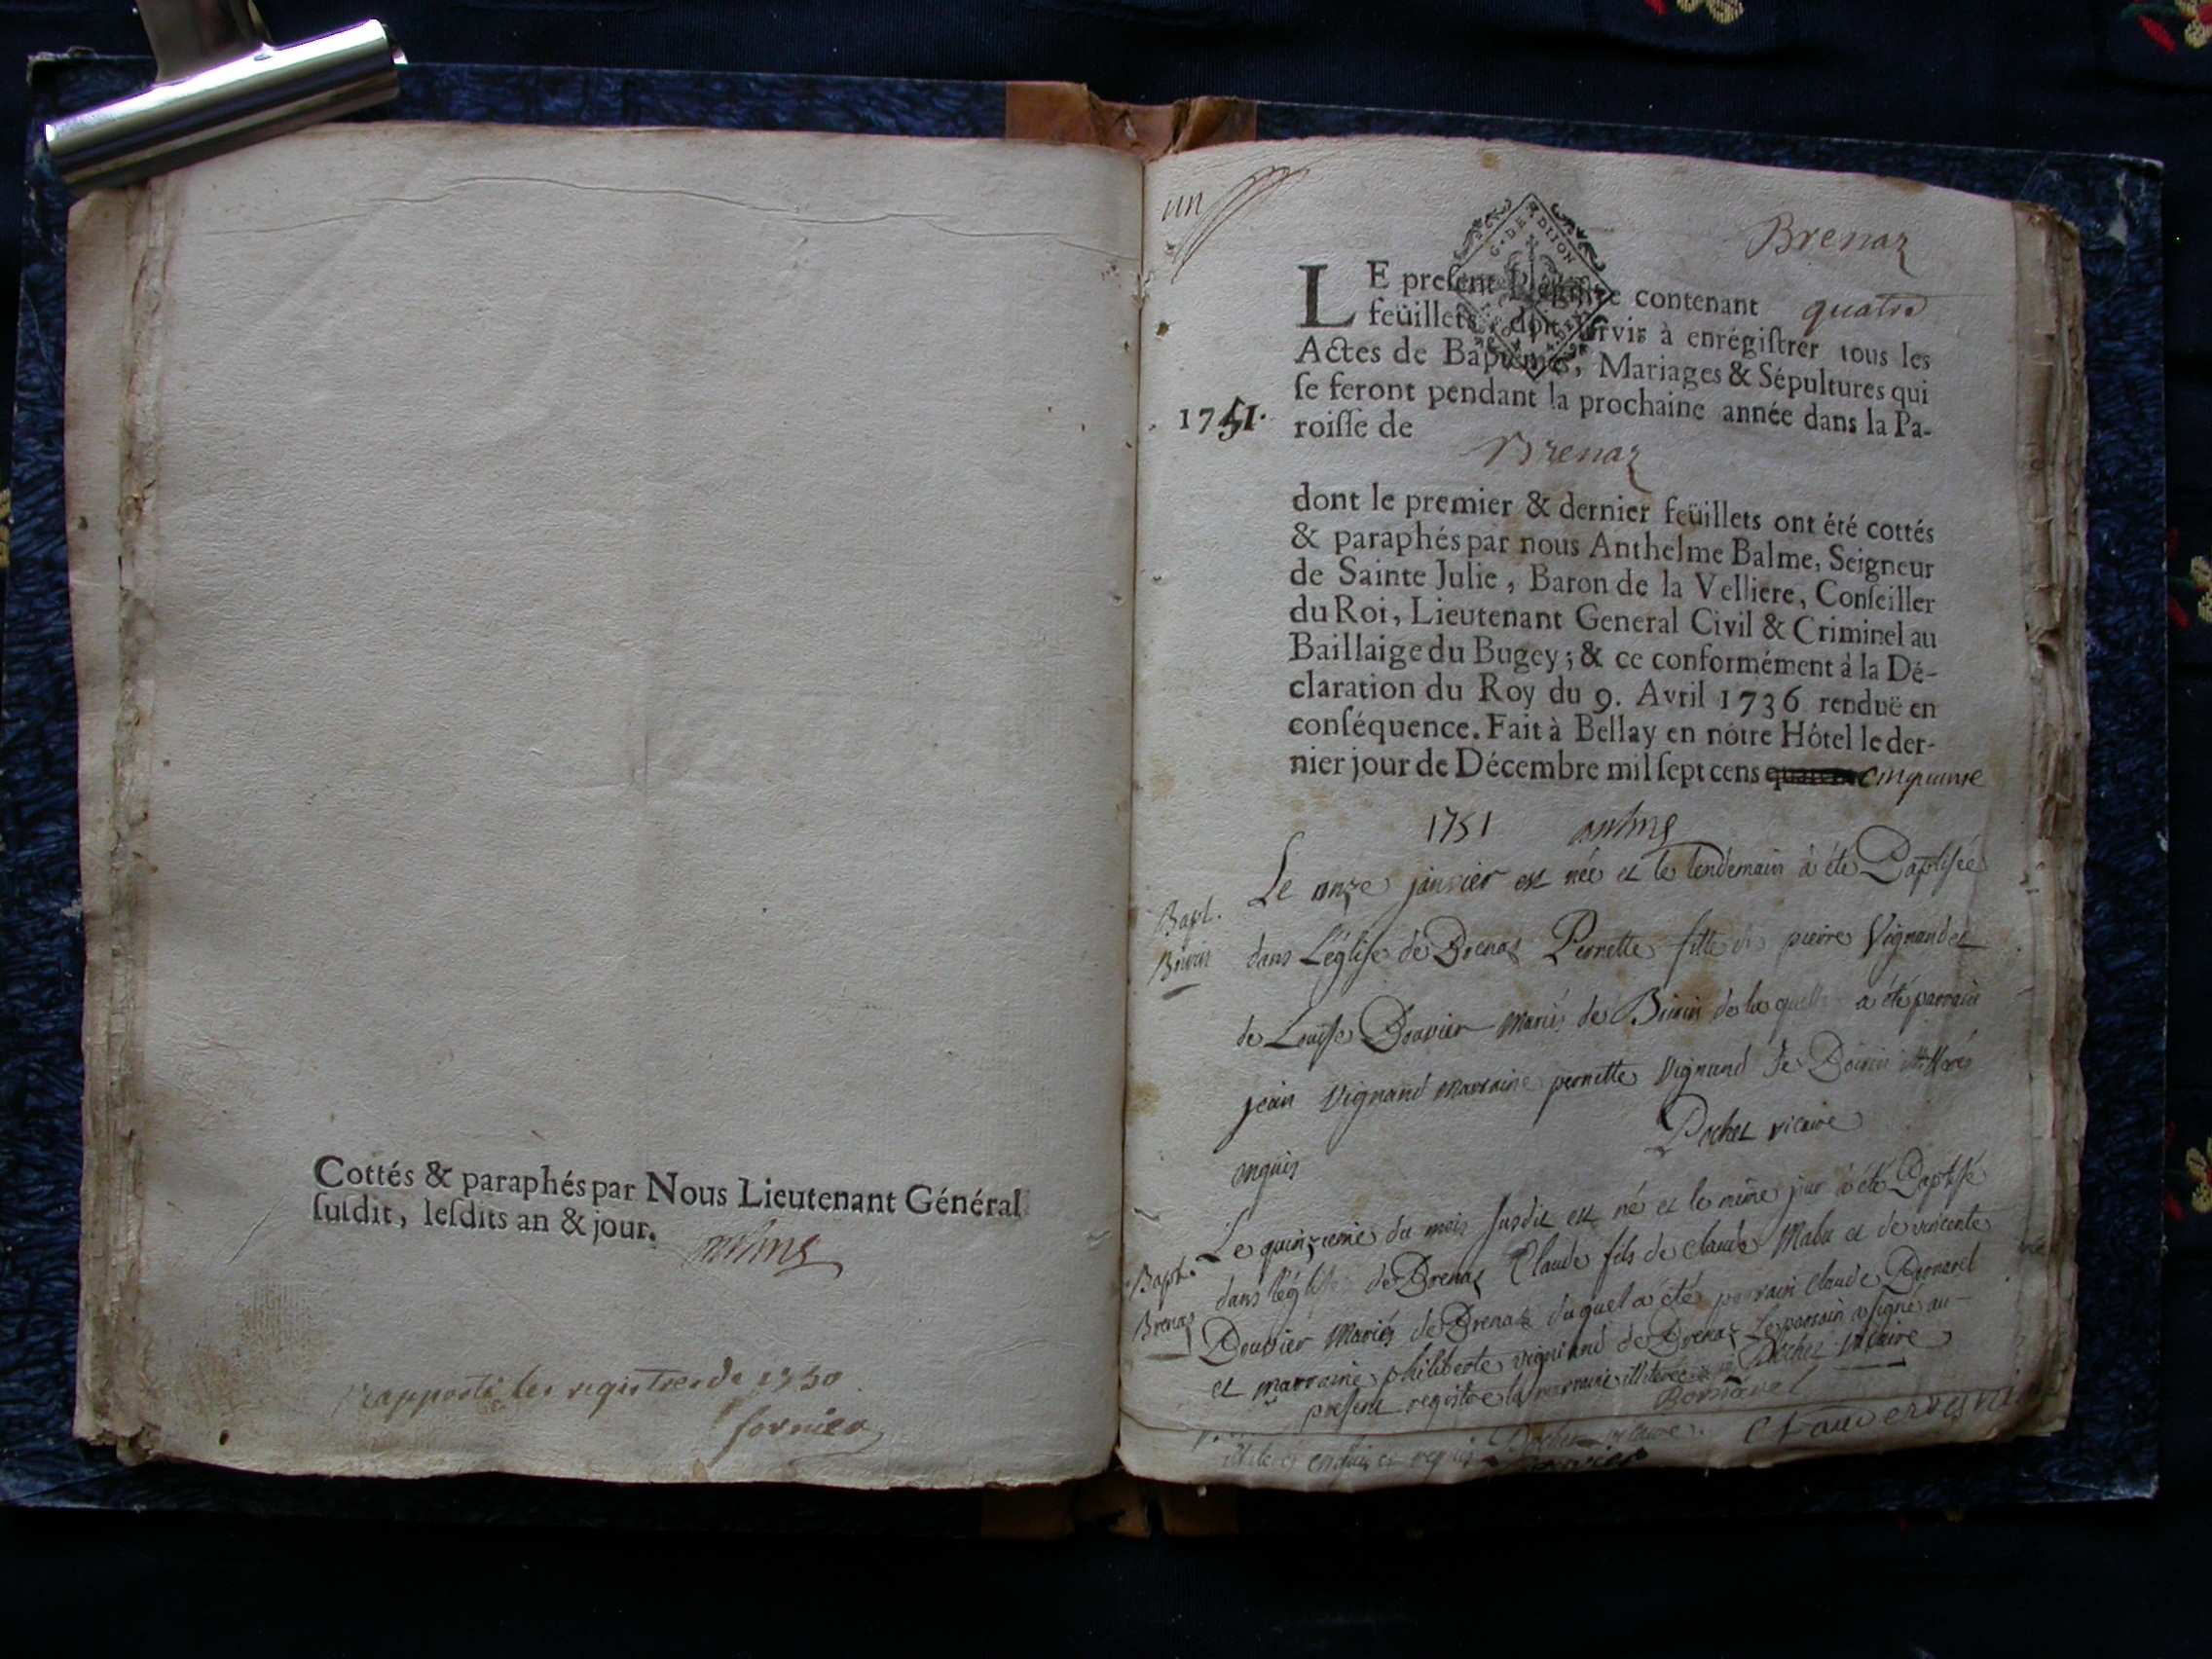 Cottés & paraphés par Nous Lieutenant Général
ſuſdit, leſdits an & jour.
rapporté les registres de 1750
fornier
un
G. DE DIJON
Brenaz
LE preſent Regiſtre contenant quatre
feüillets, doit ſervir à enrégiſtrer tous les
Actes de Baptêmes, Mariages & Sépultures qui
ſe feront pendant la prochaine année dans la Pa-
1751.
roiſſe de
Brenaz
dont le premier & dernier feüillets ont été cottés
& paraphés par nous Anthelme Balme, Seigneur
de Sainte Julie, Baron de la Velliere, Conſeiller
du Roi, Lieutenant General Civil & Criminel au
Baillaige du Bugey; & ce conformément à la Dé-
claration du Roy du 9. Avril 1736 renduë en
conſéquence. Fait à Bellay en nôtre Hôtel le der-
nier jour de Décembre mil ſept cens cinquante
1751
Le onze janvier est née et le lendemain à été Baptisée
Bapt.
dans L'église de Brenaz Pernette fille de pierre Vignand et
de Louise Bouvier mariés de de la quelle a été parrain
jean Vignand marraine pernette Vignand de illiterés
enquis
Pochet vicaire
Le quinzieme du mois susdit est né et le même jour à été Baptisé
Bapt.
dans l'église de Brenaz Claude fils de claude et de vincente
Brenaz
Bouvier Mariés de Brenaz duquel a été parrain claude
et marraine philiberte vignand de Brenaz Le parrain a signé au
present registre la marraine illiterée Pochet vicaire
enquis et requis Pochet vicaire.